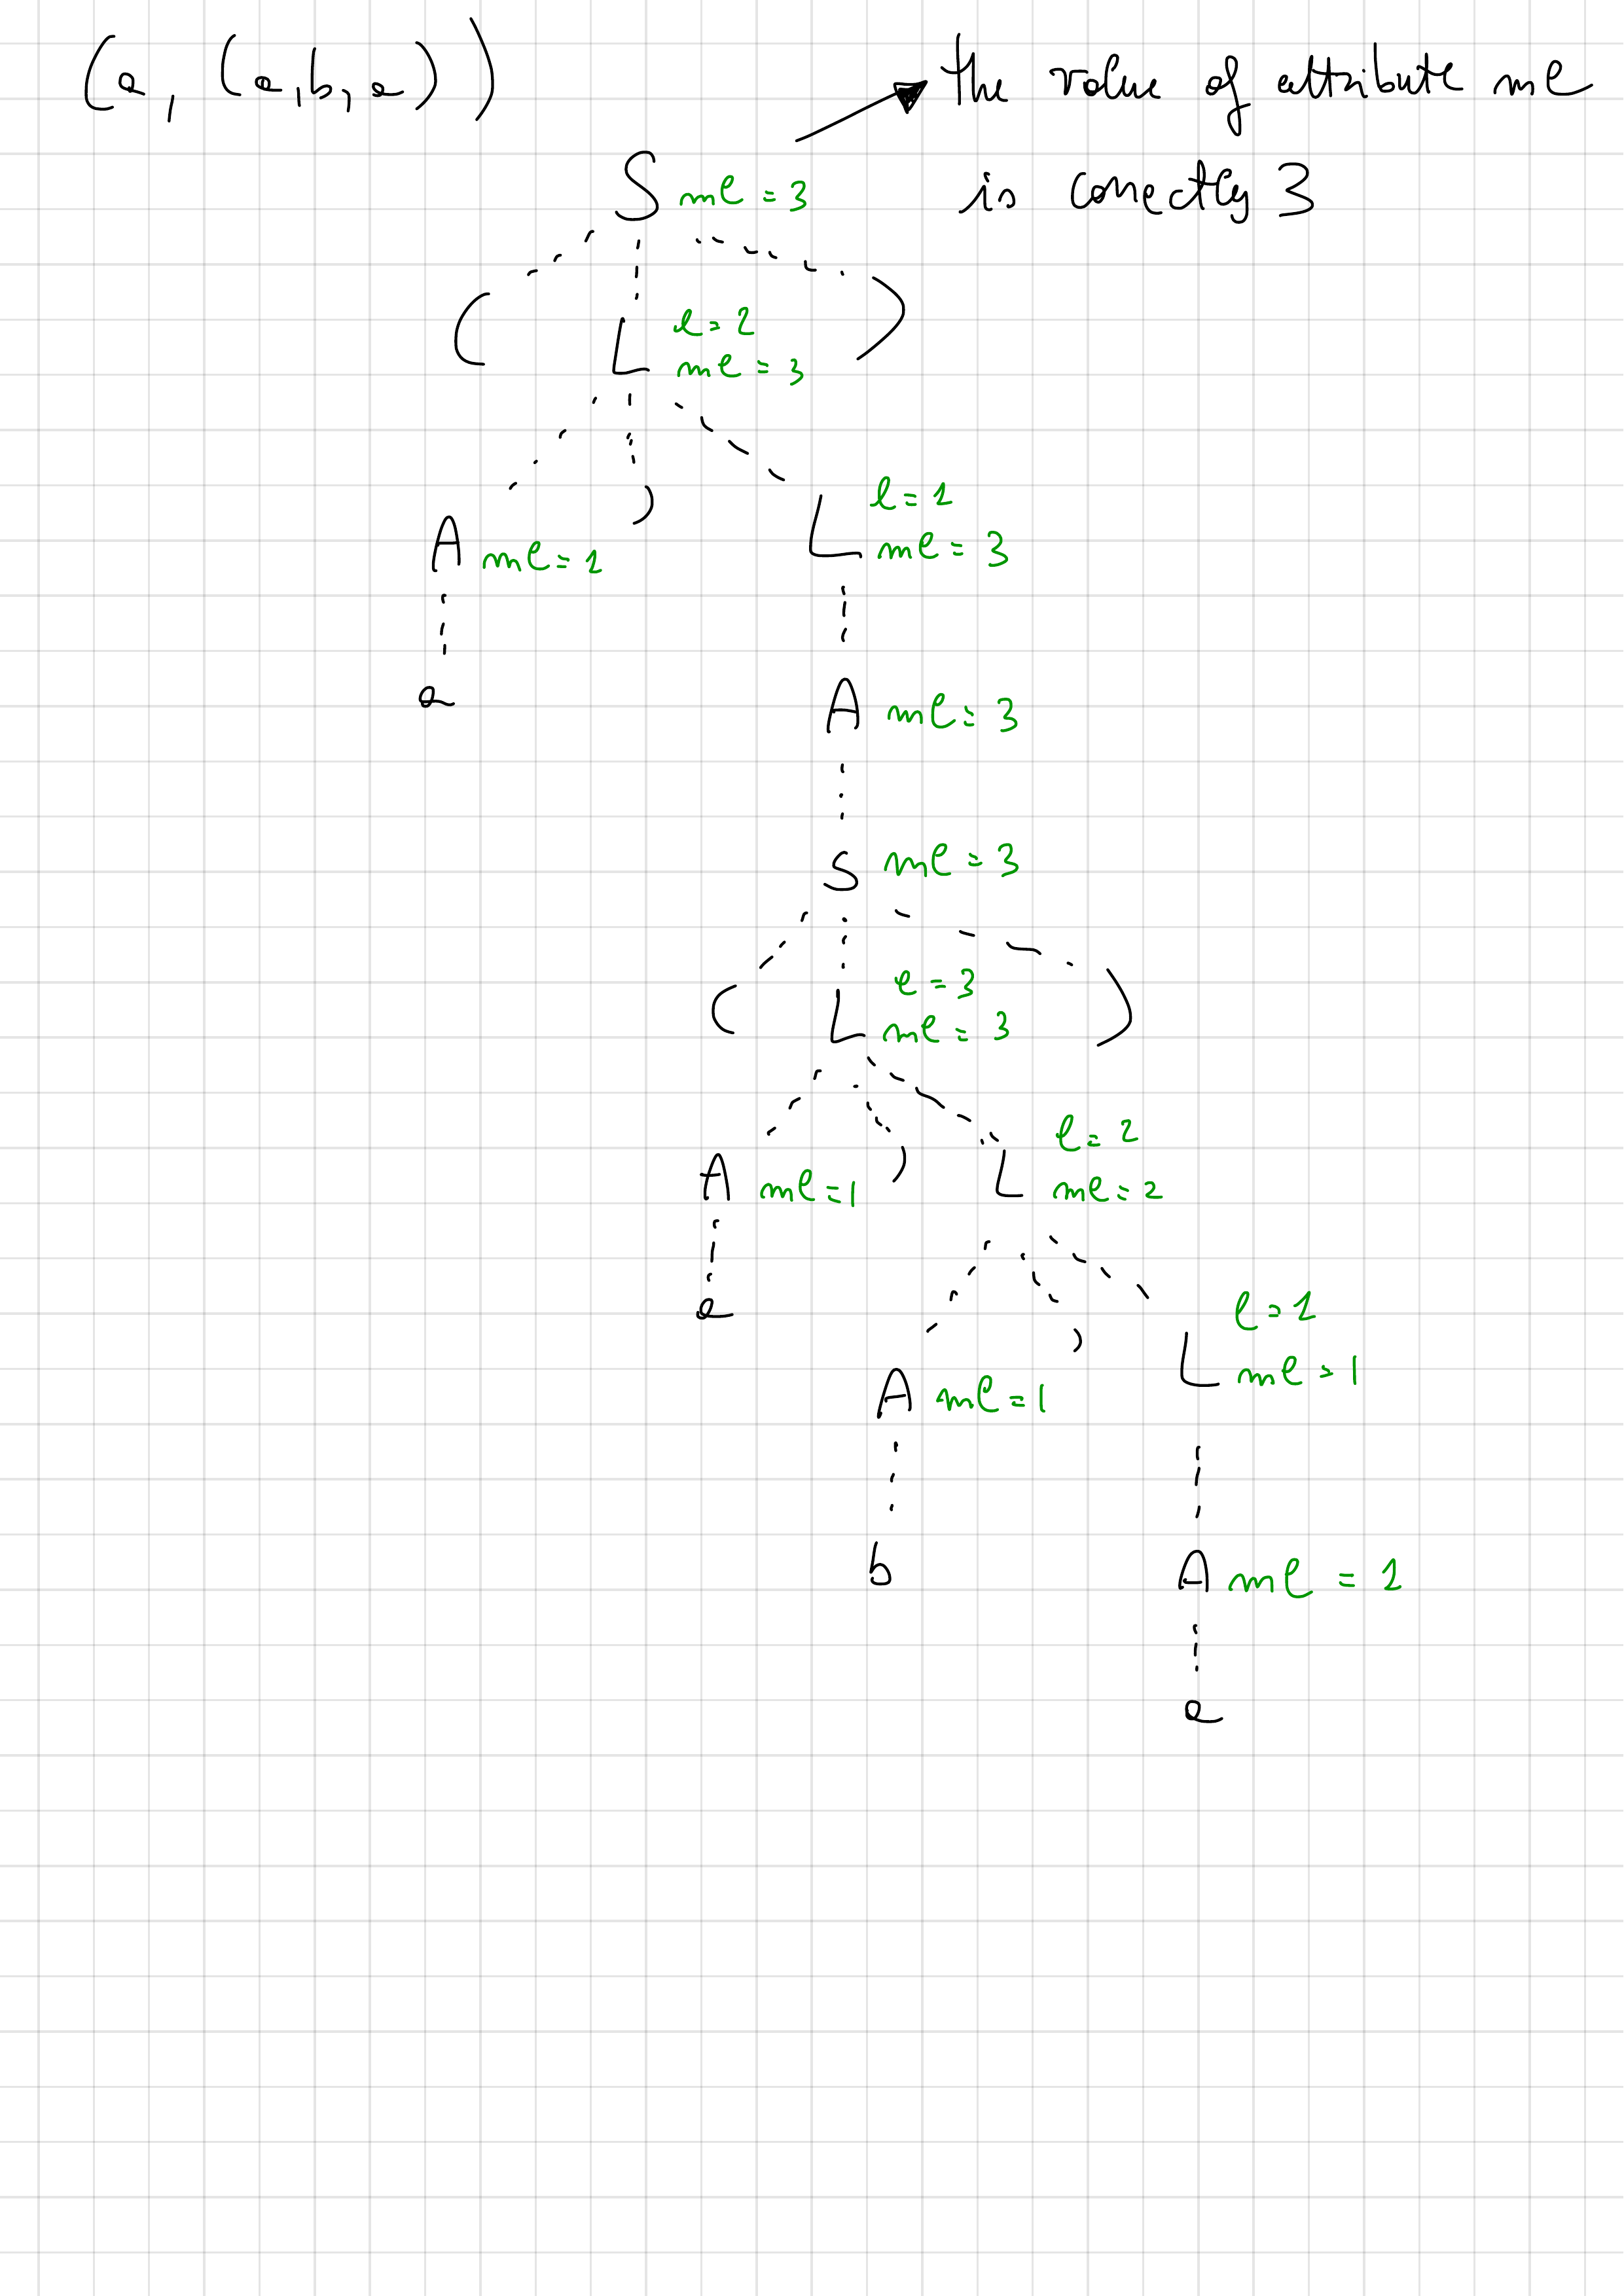 (a, (a,b,a))
the value of attribute ml
is correctly 3
S ml = 3
( L l = 2 )
ml = 3
A ml = 1 , L l = 1
ml = 3
a
A ml = 3
S ml = 3
( L l = 3 )
ml = 3
A ml = 1 , L l = 2
ml = 2
a
A ml = 1 , L l = 1
ml = 1
b
A ml = 1
a